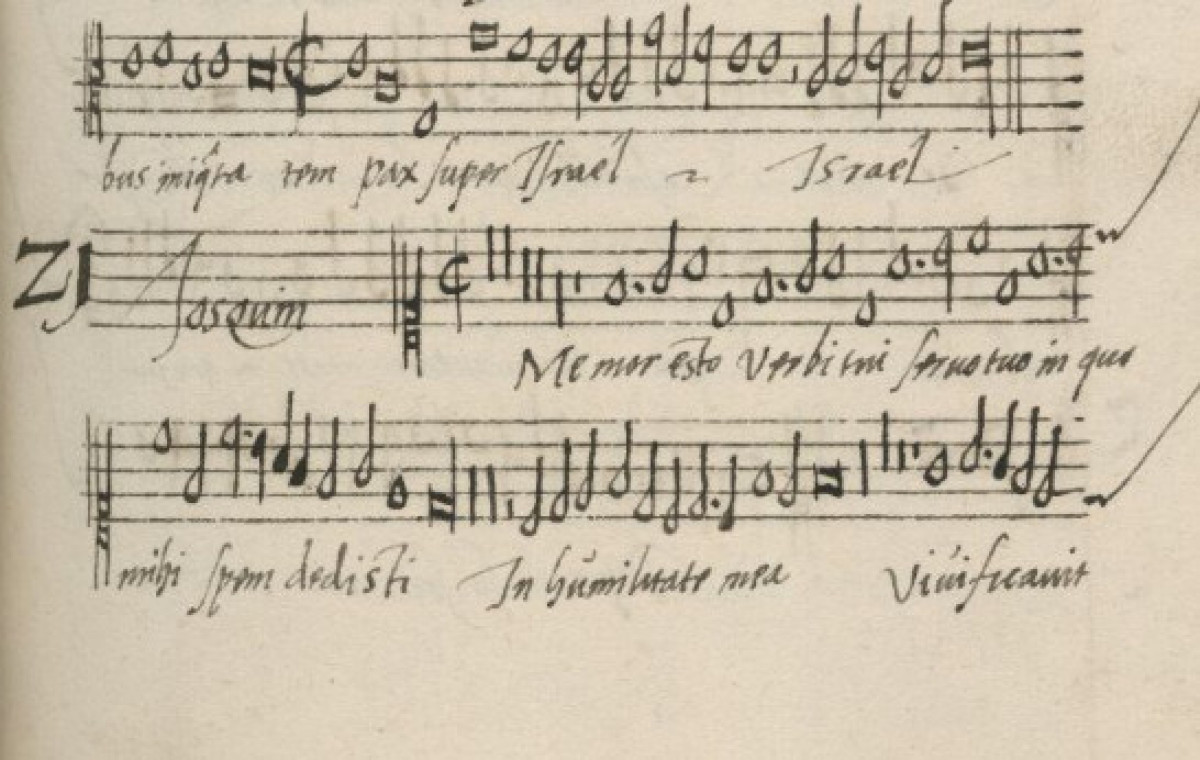 bus iniq̃ta tem pax super Israel Israel
ZI Josquin
Memor esto verbi tui servo tuo in quo
mihi spem dedisti In humilitate mea Vivificavit